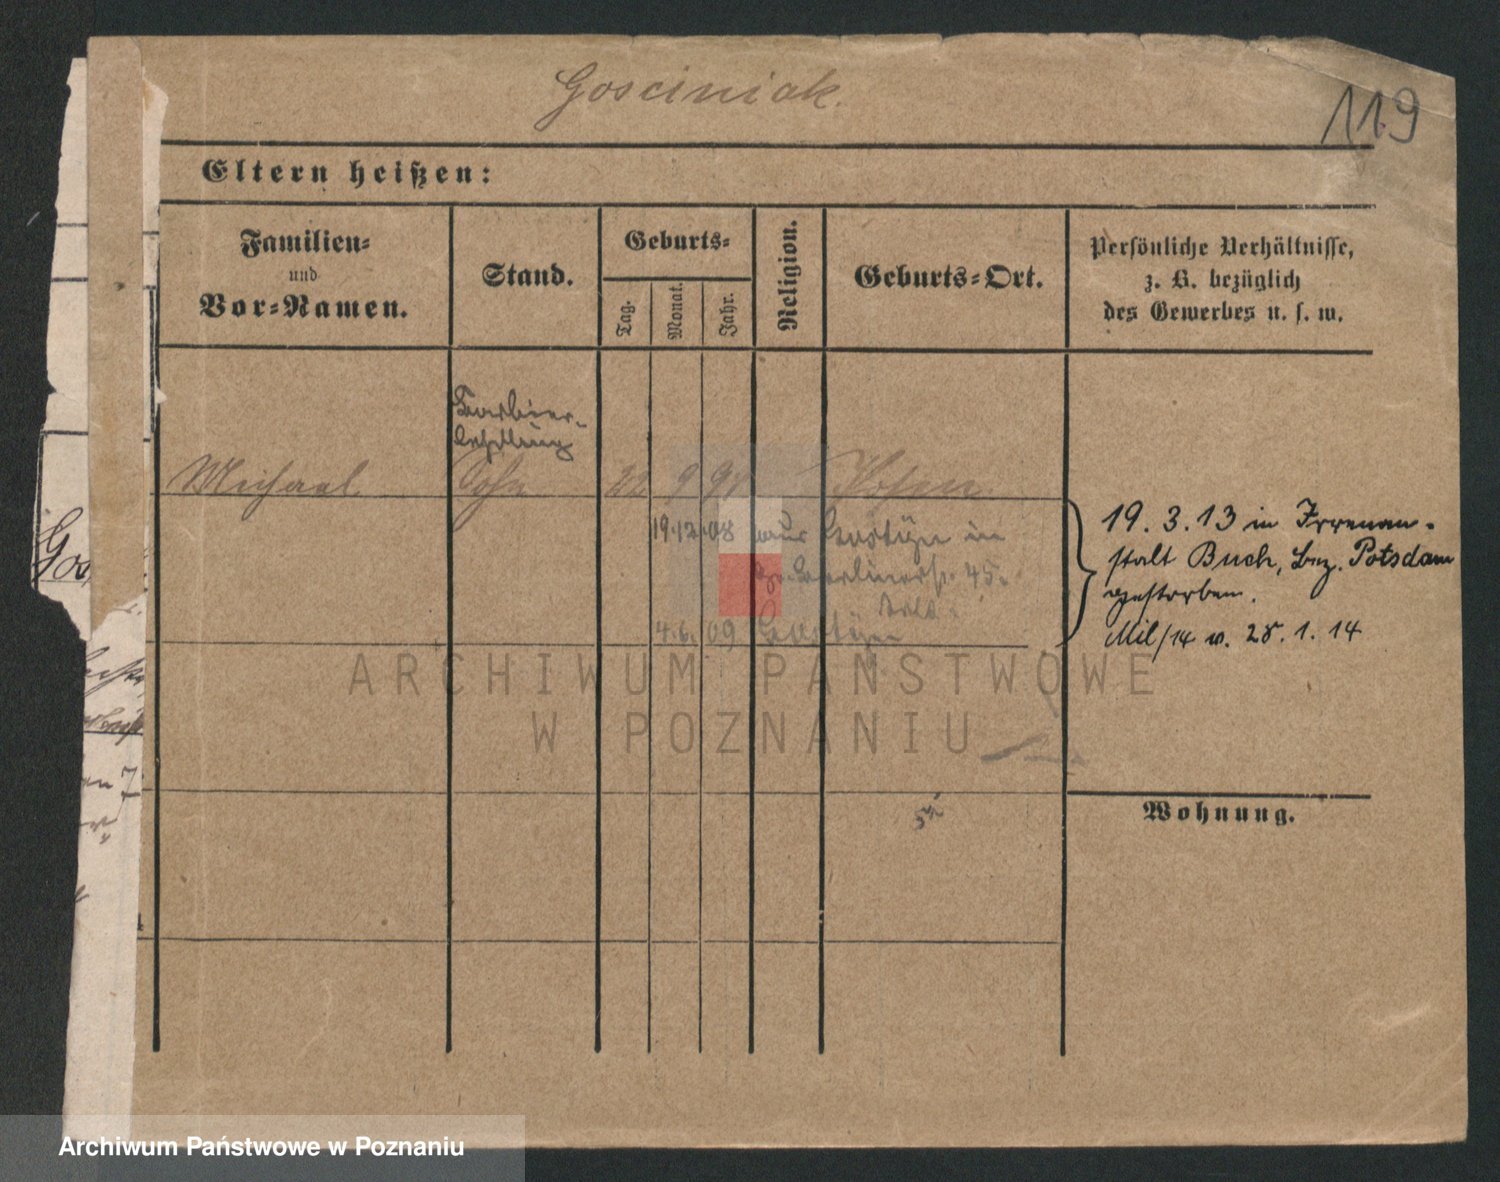 Gosciniak.
119
Eltern heißen:
Familien-
und
Vor-Namen.
Stand.
Geburts-
Tag.
Monat.
Jahr.
Religion.
Geburts-Ort.
Persönliche Verhältnisse,
z. B. bezüglich
des Gewerbes u. s. w.
Barbier-
lehrling
Michael
Sohn
22
9
Posen
19. 3. 13 in Irrenan-
19.12.08 aus Gostyn in
stalt Buch, bez. Potsdam
Berlinerstr. 45.
gestorben.
4. 6. 09 Gostyn
Mil/14 v. 28. 1. 14
ARCHIWUM PAŃSTWOWE
W POZNANIU
Wohnung.
Gos
Archiwum Państwowe w Poznaniu